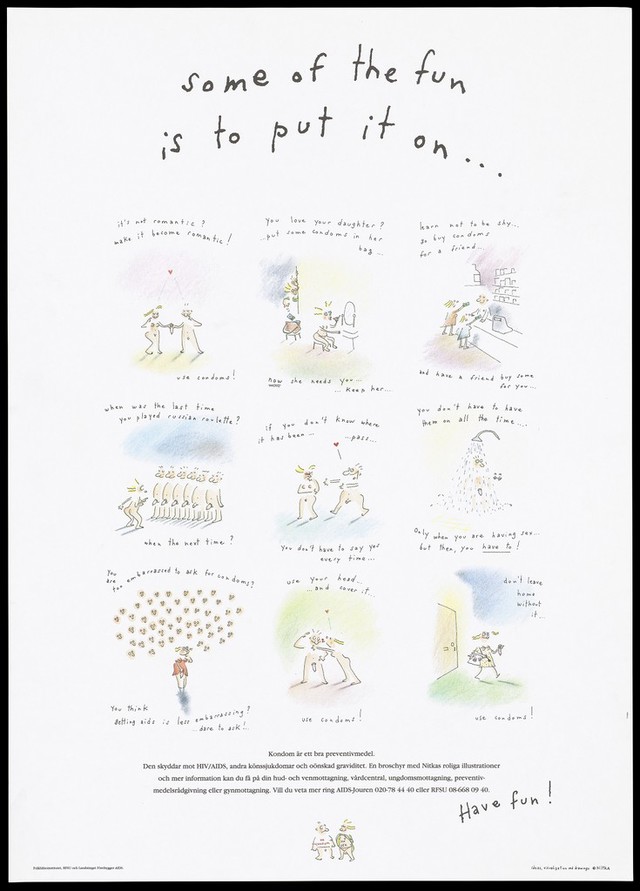 some of the fun
is to put it on...
it's not romantic?
make it become romantic!
use condoms!
you love your daughter?
..put some condoms in her
bag...
now she needs you...
...keep her...
learn not to be shy...
go buy condoms
for a friend...
and have a friend buy some
for you...
when was the last time
you played russian roulette?
when the next time?
if you don't know where
it has been...
...pass...
you don't have to say yes
every time...
you don't have to have
them on all the time...
Only when you are having sex...
but then, you have to!
You
are too embarrassed to ask for condoms?
You think
Getting aids is less embarrassing?
...dare to ask!..
use your head...
...and cover it...
use condoms!
don't leave
home
without
it...
use condoms!
Kondom är ett bra preventivmedel.
Den skyddar mot HIV/AIDS, andra könssjukdomar och oönskad graviditet. En broschyr med Nitkas roliga illustrationer
och mer information kan du få på din hud- och venmottagning, vårdcentral, ungdomsmottagning, preventiv-
medelsrådgivning eller gynmottagning. Vill du veta mer ring AIDS-Jouren 020-78 44 40 eller RFSU 08-668 09 40.
Have fun!